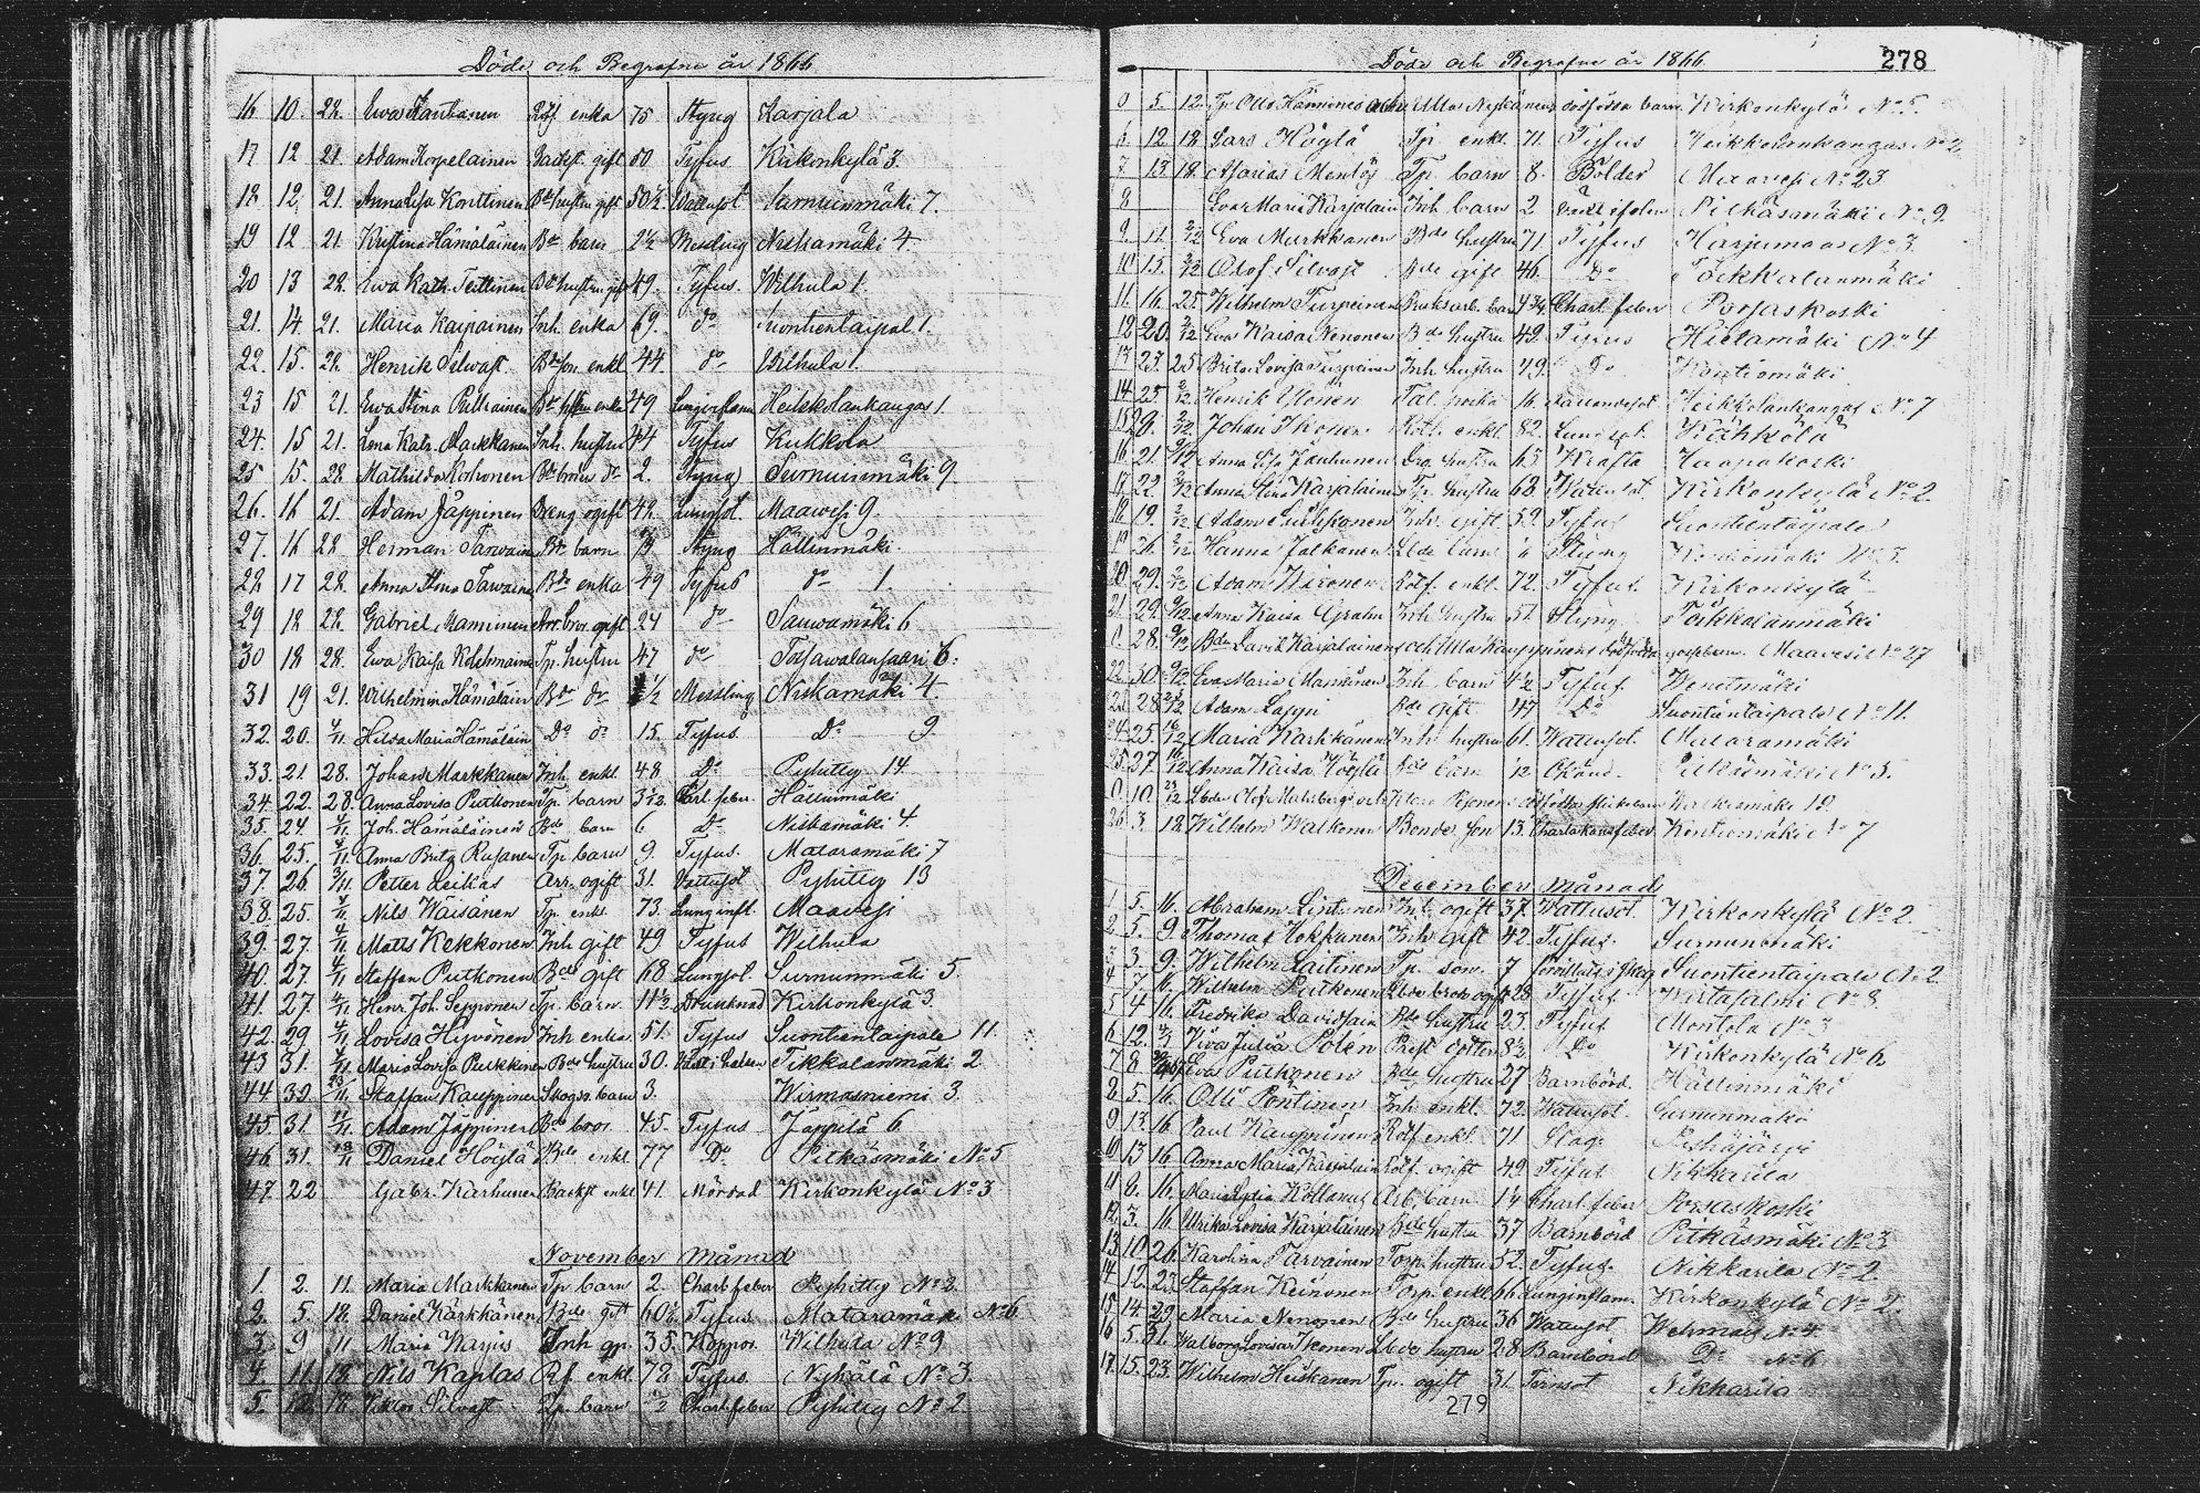 Döde och Begrafne år 1866
16 10. 28. Ewa Kautianen Rotf. enka 75 Styng Karjala
17 12 21. Adam Korpelainen Backst. gift 50 Tyfus Kirkonkylä 3.
18. 12. 21. Anna Lisa Konttinen Bde hustru gift 50½. Wattusot Surnuinmäki 7.
19 12 21. Kristina Hämäläinen Bde barn 2½ Messling Niskamäki 4
20 13 28. Ewa Kath. Teittinen Bde hustru gift 49. Tyfus. Wilhula 1.
21. 14. 21. Maria Kaipainen Inh. enka 69. do Suontientaipal 1.
22. 15. 28. Henrik Silwast. Bde son enkl 44. do Wilhula 1.
23 15 21. Ewa Stina Pulkkainen Bde enka 49 Lunginflam Heikkolankangas 1.
24. 15 21. Lena Katr. Markkanen Inh. hustru 44 Tyfus Kukkola
25 15. 28 Mathilda Korhonen Bde do 2. Styng Surnuinmäki 9
26. 16 21. Adam Jäppinen Dreng ogift 42. Lungsot. Maawesi 9.
27. 16 28 Herman Tarwain Bde barn Styng Hällinmäki.
28 17 28. Anna Stina Tarwain Bde enka 49 Tyfus do 1
29 18 28. Gabriel Manninen Arr. bror gift 24 do Sauwamäki 6
30 18 28. Ewa Kaisa Kolehmain Tp. hustru 47 do Torsawalansaari 6.
31 19 21. Wilhelmina Hämäläin Bde do ½ Messling Niskamäki 4.
32. 20. 4/11. Hilda Maria Hämäläin Do do 15. Tyfus. Do 9.
33. 21. 28. Johan Markkanen Inh. enkl. 48 Do Pyhittÿ 14.
34. 22. 28. Anna Lovisa Putkonen Tp. barn 3 1/12. Charl. feber. Hällinmäki
35. 24. 4/11. Joh. Hämäläinen Bde barn 6 Do Niskamäki 4.
36. 25. 4/11. Anna Brita Rusanen Tp. barn 9. Tyfus. Mataramäki 7
37. 26. 3/11. Petter Leikas Arr. ogift 31. Vattusot Pyhitty 13
38. 25. 4/11. Nils Wäisänen Tp. enkl. 73. Lunginfl. Maavesi
39. 27. 4/11 Matts Kekkonen Inh gift 49. Tyfus Wilhula
40. 27. 4/11 Staffan Putkonen Bde gift 68 Lungsot. Surnunmäki 5.
41. 27. 4/11 Henr. Joh. Sepponen Tp. barn. 11½ Drunknad Kirkonkylä 3.
42. 29. 4/11. Lovisa Hyvönen Inh enka. 51. Tyfus Suontientaipale 11.
43 31. 4/11. Maria Lovisa Pulkkinen Bde hustru 30. Vatt i halsen Tikkalanmäki 2
44 32. 23/11. Staffan Kauppinen Skogs. barn 3. Wirmasniemi 3.
45. 31. 11/11. Adam Jäppinen Bde bror 45. Tyfus Jäppilä 6.
46 31. 18/11 Daniel Höylä Bde enkl 77 Do Pitkäsmäki No 5
47. 22 Gabr. Karhunen Backst enkl 41. Mördad Kirkonkylä No 3
November månad
1. 2. 11. Maria Markkanen Tp barn 2. Charl feber Pyhitty No 2.
2. 5. 18. Daniel Kärkkänen Bde gift 60½. Tyfus Mataramäki No 6.
3. 9 11 Maria Warjus Inh gp. 35. Koppor. Wilhula No 9
4. 11. 18. Nils Kaplas Rf. enkl. 72 Tyfus. Nykälä No 3.
5. 12. 18. Viktor Silvast Tp. barn Charl. feber Pyhitty No 2
Döde och Begrafne år 1866 278
0 5. 12. Tp. Otto Hänninens och Ulla Nykänens dödfödda barn Kirkonkylä No 5.
6. 12. 18 Lars Höylä Tp. enkl. 71. Tyfus Heikkolankangas No 2.
7 13. 18. Maria Mentÿ Tp. barn 8. Bölder Maavesi No 23
8 Eva Maria Karjalain Inh barn 2 Pitkäsmäki No 9.
9. 11. 2/12 Eva Markkanen Bde hustru 71. Tyfus Harjumaa No 3.
10 15. 2/12 Olof Silvast Bde gift 46. Do Töikkalanmäki
11. 16. 25. Wilhelm Turpeinen Bruksarb. barn Charl. feber Porsaskoski
12 20. 2/12 Eva Kaisa Nenonen Bde hustru 49. Tyfus Hietamäki No 4
13 23. 25 Brita Lovisa Turpeinen Inh hustru 49. Do Kontiomäki
14 25 2/12 Henrik Ylönen Tal. poika 16. Heikkolankangas No 7
15 29. 2/12. Johan Ikonen Rotf. enkl. 82. Lungsot. Kiikkölä
16 21. 9/12 Anna Lisa Jauhunen Drg. hustru 65 Krafta Haapakoski
17 22. 2/12 Anna Stina Karjalainen Tp. hustru 68 Wattusot. Kirkonkylä No 2.
18 19. 2/12. Adam Inh. gift 59. Tyfus Suontientaipale
19 26. 2/12 Hanna Jalkanen Lbde barn Styng Kontiomäki No 3.
20 29. 2/12 Adam Hironen Rotf. enkl. 72. Tyfus. Kirkonkylä
21 29. 9/12 Anna Kaisa Grahn Inh hustru 51. Styng Töikkalanmäki
0. 28. 9/12 Bde David Karjalainens och Ulla Kauppinens dödfödda gossbarn. Maavesi No 27
22 30. 9/12. Eva Maria Manninen Inh barn 4½ Tyfus. Wenetmäki
23 28. 23/12. Adam Lappi Bde gift 47 Do Suontientaipale No 11.
24 25. 16/12 Maria Karkkänen Inh hustru 61. Wattusot. Mataramäki
25. 27. 16/12 Anna Kaisa Höylä Bde barn Okänd. Pitkäsmäki No 5.
0. 10. 23/12 Lbde Olof Malmbergs och Klara dödfödda flickebarn 18.
26 3. 18. Wilhelm Walkonen Bonde son 13. Charlakansfeber Kontiomäki No 7
December månad
1. 5. 16. Abraham Lintunen Inh. ogift 37. Wattusot. Kirkonkylä No 2
2. 5. 9. Thomas Hokkanen Inh gift 42. Tyfus. Surnunmäki
3 3. 9. Wilhelm Laitinen Tp. son. 7 Suontientaipale No 2.
4. 7. 16. Wilhelm Putkonen Lbde bror ogift 28 Tyfus. Wirtasalmi No 8.
5 4 16. Fredrika Davidsain Bde hustru 23. Tyfus Montola No 3
6 12. Viva Julia Polén Prest dotter 8½ Do Kirkonkylä No 6.
7 8 Eva Putkonen Bde hustru 27 Barnbörd. Hällinmäki
8 5 16. Olli Pöntinen Inh enkl. 72. Wattusot. Surnunmäki
9 13. 16. Paul Kauppinen Rotf enkl. 71 Slag. Pyhäjärvi
10 13 16. Anna Maria Karjalain Rotf. ogift 49. Tyfus Nikkarila
11 8. 16. Maria Lydia Kollanus Arb. barn Charl. feber Porsaskoski
12. 3. 16. Ulrika Lovisa Karjalainen Bde hustru 37 Barnbörd Pitkäsmäki No 3
13 10 26. Karolina Tarvainen Torp. hustru 52. Tyfus. Nikkarila No 2.
14 12. 23. Staffan Keinonen Torp. enkl 66 Lunginflam. Kirkonkylä No 2.
15 14 29. Maria Nenonen Bde hustru 36 Wattusot Wehmas No 4.
16 5. 31. Walborg Lovisa Ikonen Lbde hustru 28 Barnbörd Do No 6
17. 15. 23. Wilhelm Heiskanen Tp. ogift 31. Tarmsot Nikkarila
279